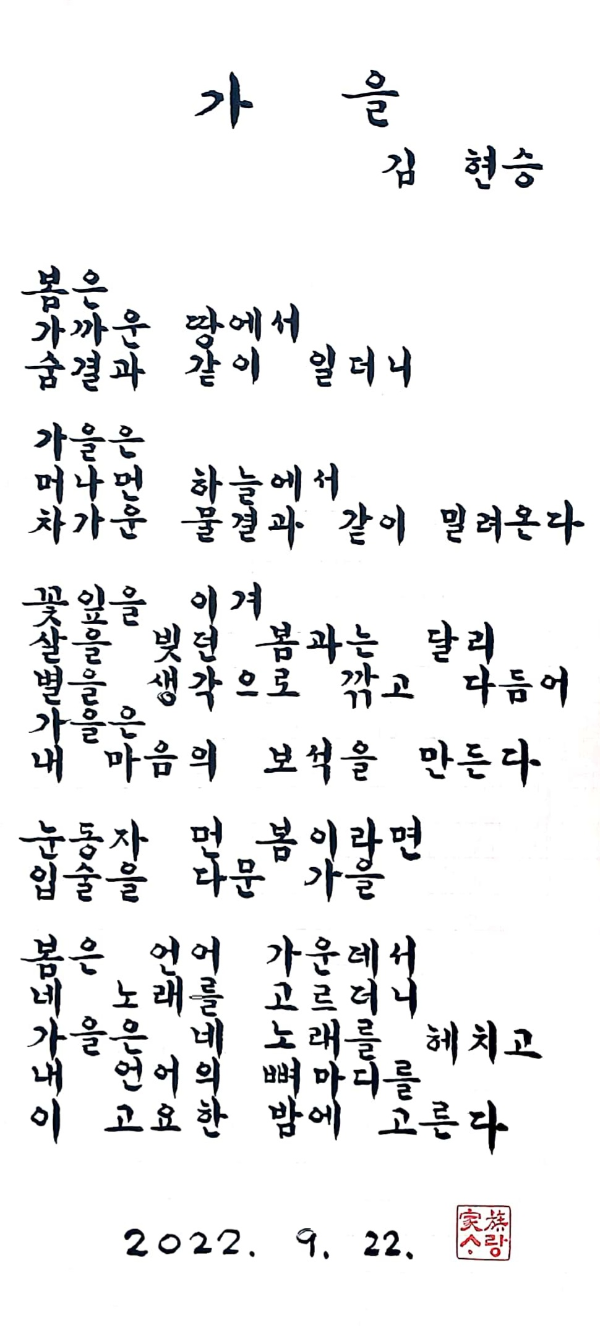 가 을
김 현승
봄은
가까운 땅에서
숨결과 같이 일더니
가을은
머나먼 하늘에서
차가운 물결과 같이 밀려온다
꽃잎을 이겨
살을 빚던 봄과는 달리
별을 생각으로 깎고 다듬어
가을은
내 마음의 보석을 만든다
눈동자 먼 봄이라면
입술을 다문 가을
봄은 언어 가운데서
네 노래를 고르더니
가을은 네 노래를 헤치고
내 언어의 뼈마디를
이 고요한 밤에 고른다
2022. 9. 22.
家族
랑